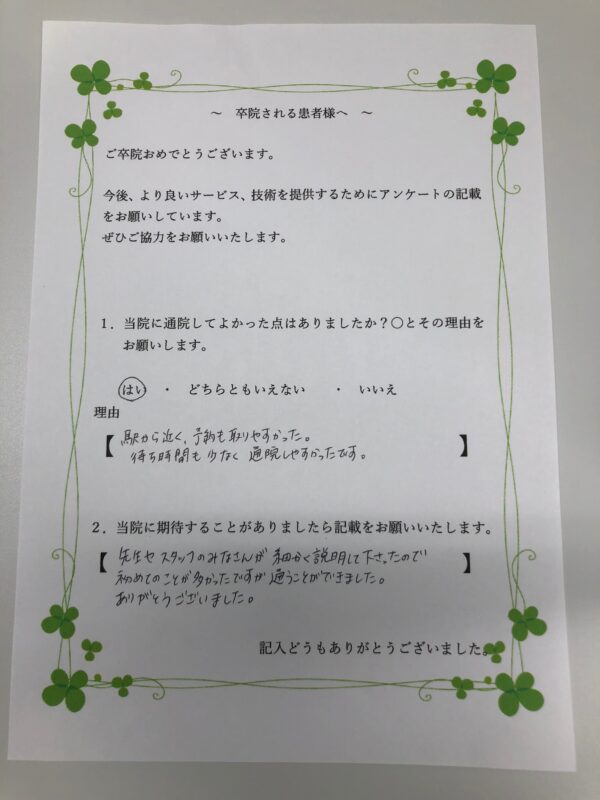 ～ 卒院される患者様へ ～
ご卒院おめでとうございます。
今後、より良いサービス、技術を提供するためにアンケートの記載
をお願いしています。
ぜひご協力をお願いいたします。
１．当院に通院してよかった点はありましたか？〇とその理由を
お願いします。
はい ・ どちらともいえない ・ いいえ
理由
【 駅から近く、予約も取りやすかった。 】
待ち時間も少なく 通院しやすかったです。
２．当院に期待することがありましたら記載をお願いいたします。
【 先生や スタッフのみなさんが 細かく説明して下さったので 】
初めてのことが多かったですが 通うことができました。
ありがとうございました。
記入どうもありがとうございました。